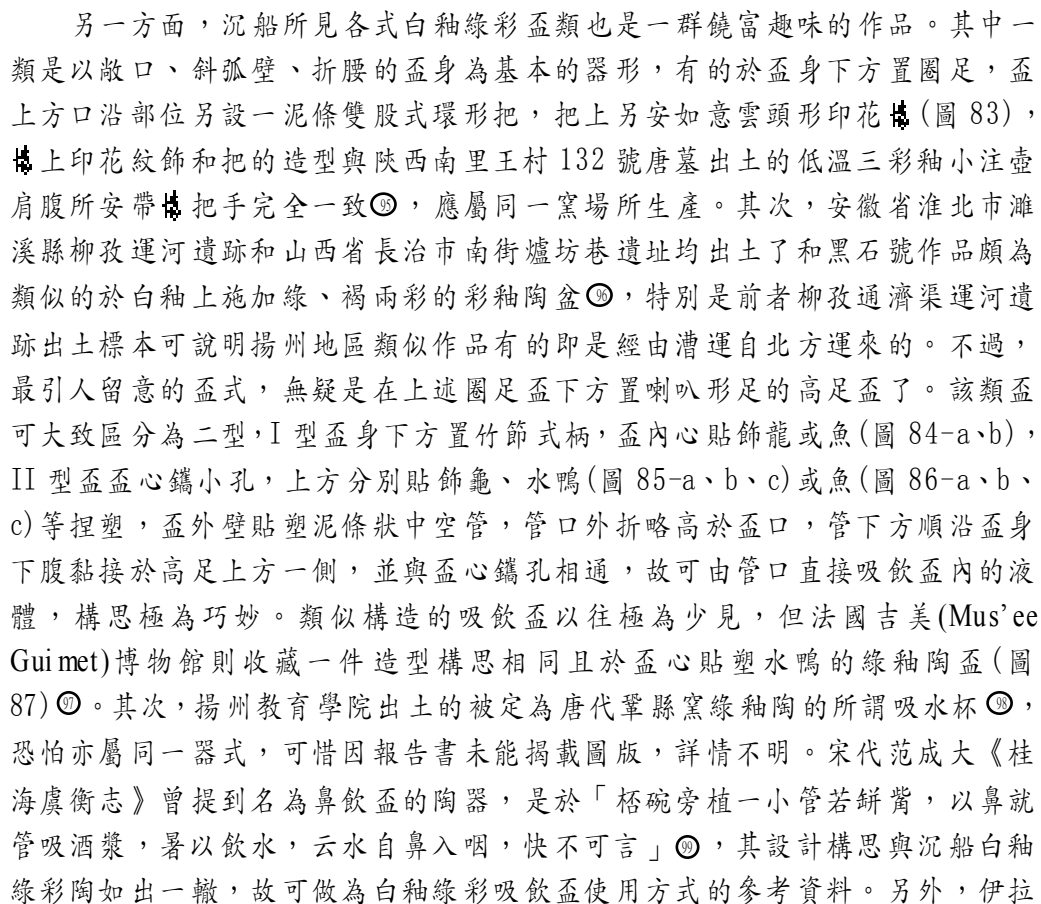 另一方面，沉船所見各式白釉綠彩盃類也是一群饒富趣味的作品。其中一
類是以敞口、斜弧壁、折腰的盃身為基本的器形，有的於盃身下方置圈足，盃
上方口沿部位另設一泥條雙股式環形把，把上另安如意雲頭形印花(圖 83)，
上印花紋飾和把的造型與陝西南里王村 132 號唐墓出土的低溫三彩釉小注壺
肩腹所安帶把手完全一致㊺，應屬同一窯場所生產。其次，安徽省淮北市濉
溪縣柳孜運河遺跡和山西省長治市南街爐坊巷遺址均出土了和黑石號作品頗為
類似的於白釉上施加綠、褐兩彩的彩釉陶盆，特別是前者柳孜通濟渠運河遺
跡出土標本可說明揚州地區類似作品有的即是經由漕運自北方運來的。不過，
最引人留意的盃式，無疑是在上述圈足盃下方置喇叭形足的高足盃了。該類盃
可大致區分為二型，I 型盃身下方置竹節式柄，盃內心貼飾龍或魚(圖 84-a、b)，
II 型盃盃心鑴小孔，上方分別貼飾龜、水鴨(圖 85-a、b、c)或魚(圖 86-a、b、
c)等捏塑，盃外壁貼塑泥條狀中空管，管口外折略高於盃口，管下方順沿盃身
下腹黏接於高足上方一側，並與盃心鑴孔相通，故可由管口直接吸飲盃內的液
體，構思極為巧妙。類似構造的吸飲盃以往極為少見，但法國吉美(Mus'ee
Guimet)博物館則收藏一件造型構思相同且於盃心貼塑水鴨的綠釉陶盃(圖
87)97。其次，揚州教育學院出土的被定為唐代鞏縣窯綠釉陶的所謂吸水杯98，
恐怕亦屬同一器式，可惜因報告書未能揭載圖版，詳情不明。宋代范成大《桂
海虞衡志》曾提到名為鼻飲盃的陶器，是於「桮碗旁植一小管若缾觜，以鼻就
管吸酒漿，暑以飲水，云水自鼻入咽，快不可言」99，其設計構思與沉船白釉
綠彩陶如出一轍，故可做為白釉綠彩吸飲盃使用方式的參考資料。另外，伊拉